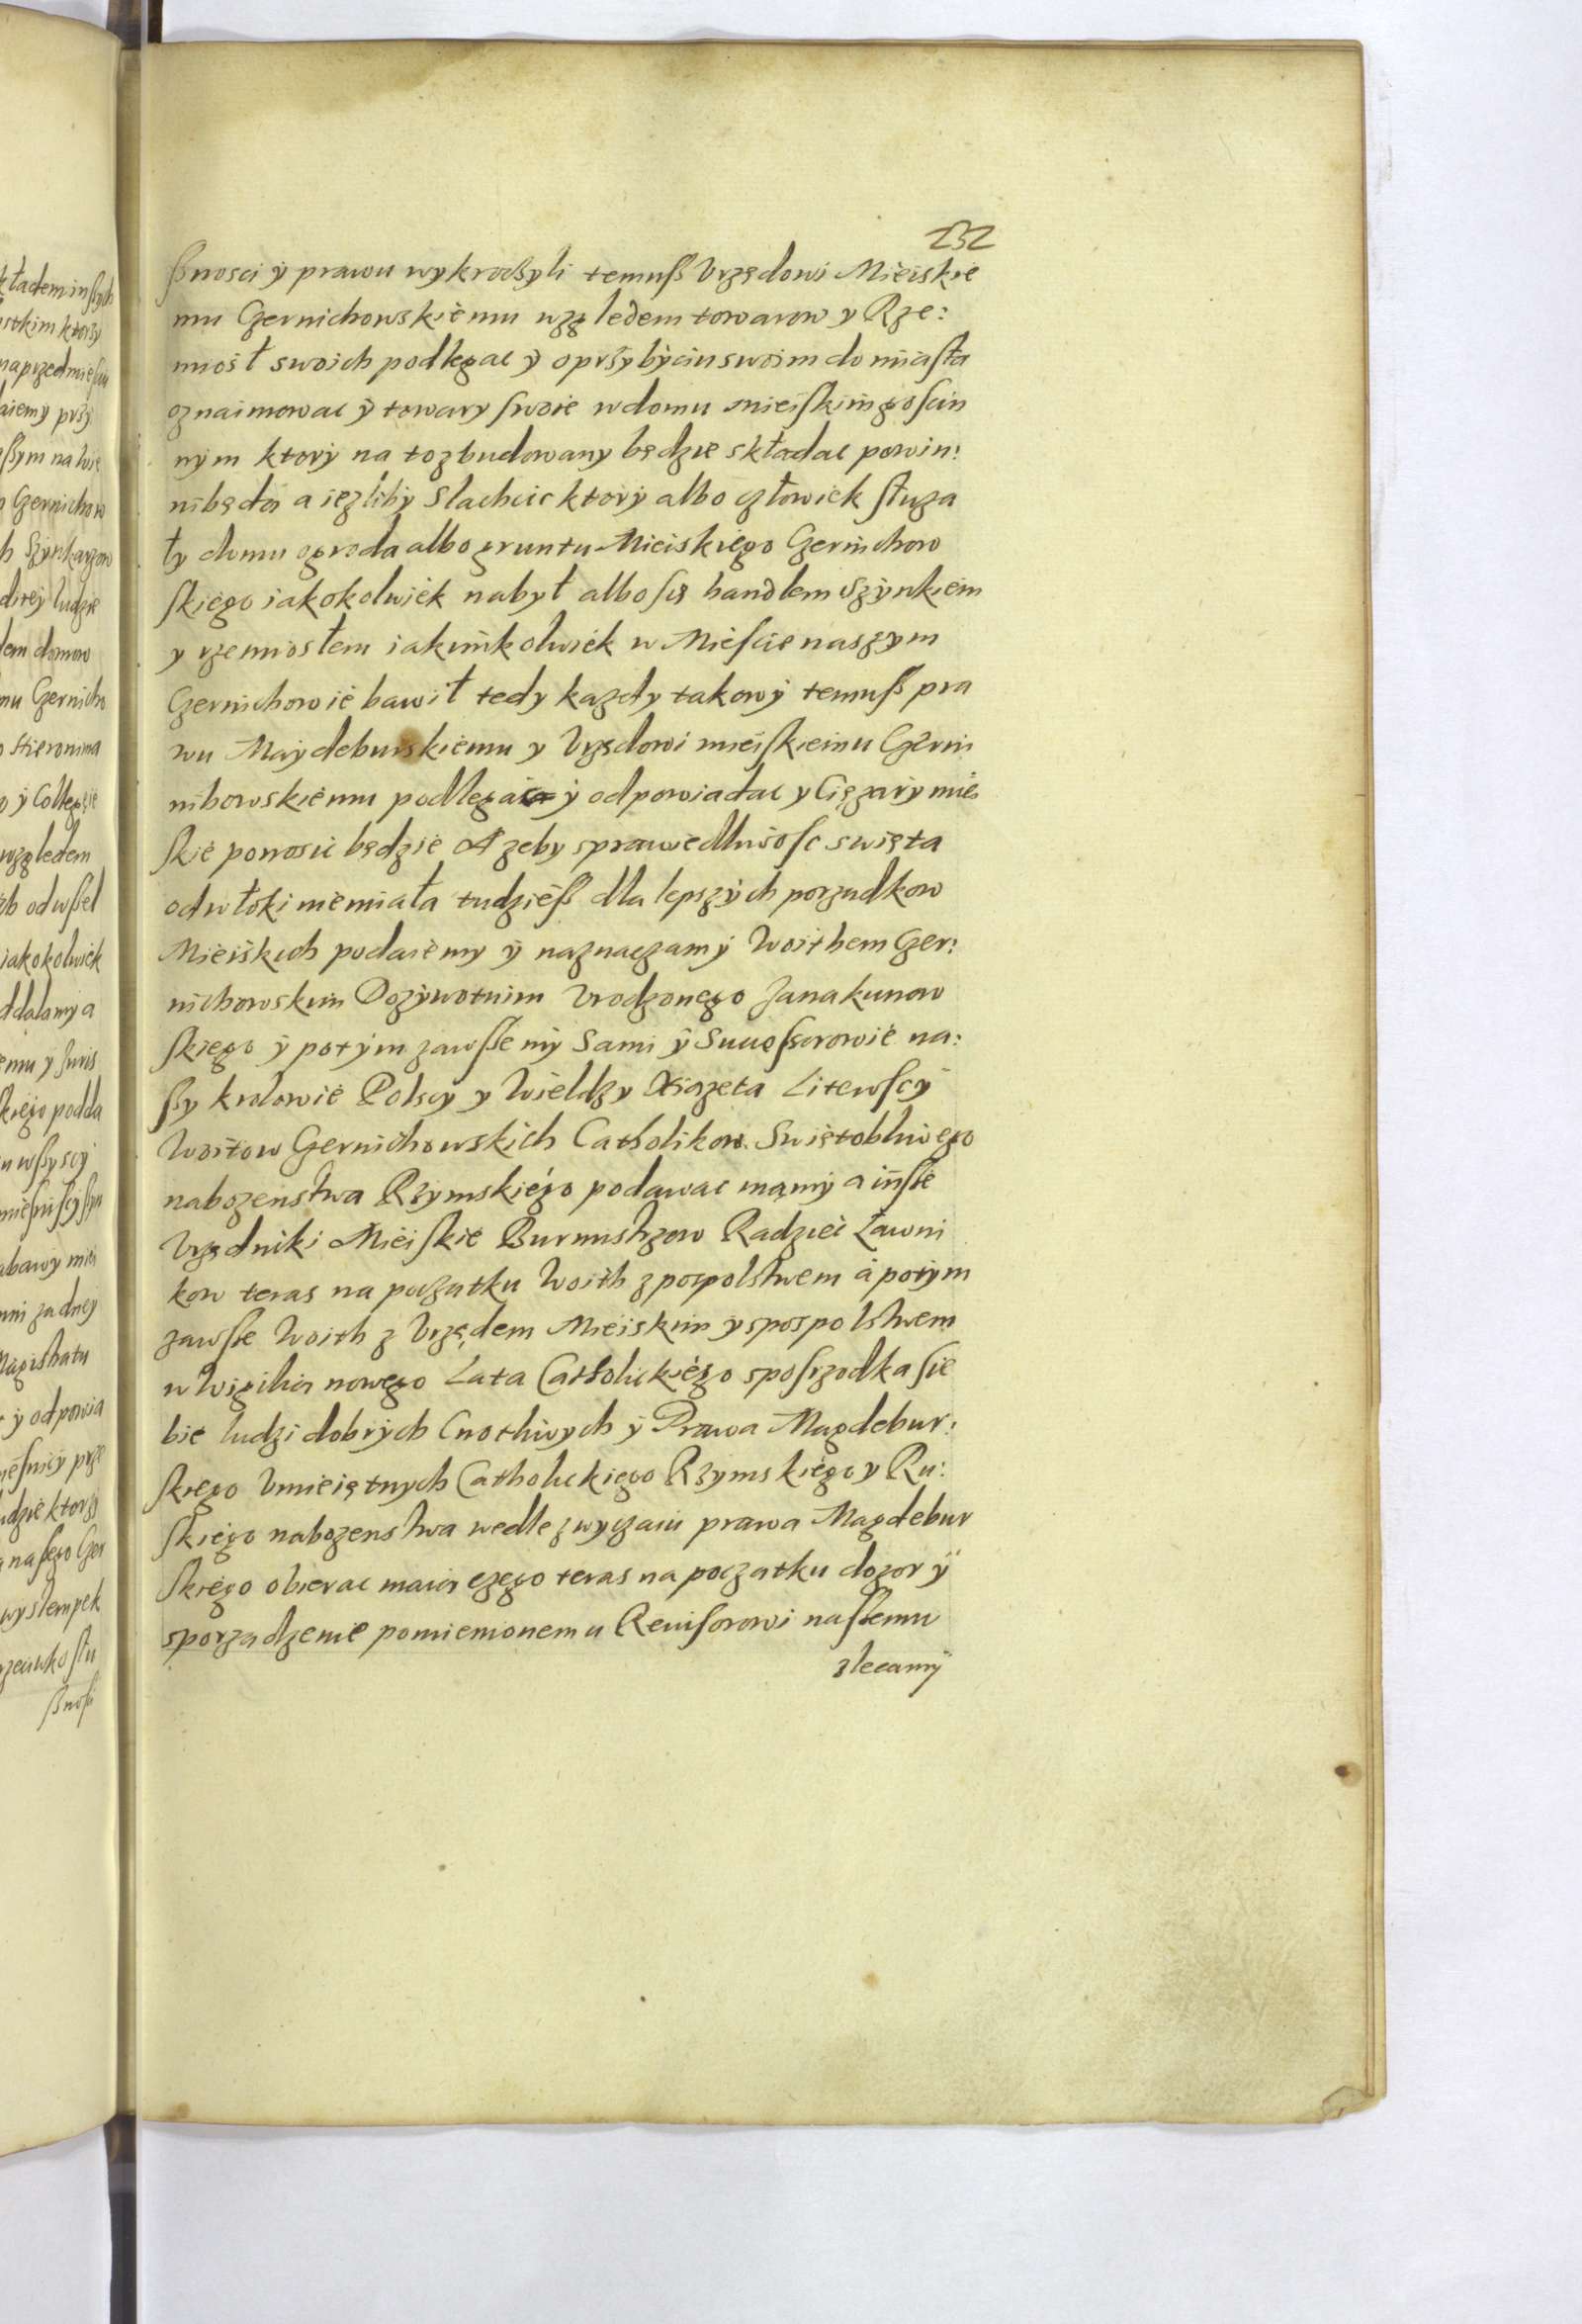 232
ſsnosci ÿ prawu wykroczyli temuſs Vrzędowi Mieiskie
mu Czernichowskiemu wzgledem towarow y Rze:
miosł swoich podlegac ÿ o przÿbÿciu swoim do miaſta
oznaimowac ÿ towary ſwoie w domu mieiſkim goſcin
nÿm ktorÿ na to zbudowany będzie składac powin:
ni będa a iezlibÿ Slachcic ktorÿ albo człowiek ſłuza
łÿ domu ogroda albo gruntu Mieiskiego Czernichow
ſkiego iakokolwiek nabył albo ſię handlem Szÿnkiem
y rzemiosłem iakimkolwiek w Mieſcie naszym
Czernichowie bawił tedy kazdy takowÿ temuſs pra
wu Maÿdeburskiemu y Vrzędowi mieiſkiemu Czerni
nihowskiemu podlegaia ÿ odpowiadac y Ciężarÿ miei
ſkie ponosic będzie A zeby sprawiedliwoſc swięta
odwłoki niemiała tudzieſs dla lepszÿch porządkow
Mieiskich podaiemy ÿ naznaczamÿ Woithem Czer:
nichowskim Dozÿwotnim Vrodzonego Jana kunow
ſkiego ÿ potÿm zawſſe mÿ Sami ÿ Succeſsorowie na:
ſsy krolowie Polscy y Wieldzy Xiązeta Litewſcÿ
Woitow Czernichowskich Catholikow Swiętobliwego
nabozenstwa Rzymskiego podawac mamÿ a inſſe
Vrzędniki Mieiſkie Burmistrzow Radziec Ławni
kow teras na początku Woith z pospolstwem a potÿm
zawſſe Woith z Vrzędem Mieiskim y spospolstwem
w Wigilia nowego Lata Catholickiego spoſrzodka ſie
bie ludzi dobrÿch Cnotliwÿch ÿ Prawa Magdebur:
ſkiego Vmieiętnych Catholickiego Rzymskiego y Ru:
ſkiego nabozenstwa wedle zwyczaiu prawa Magdebur
ſkiego obierac maia czego teras na początku dozor ÿ
sporządzenie pomienionemu Reuiſorowi naſſemu
zlecamÿ